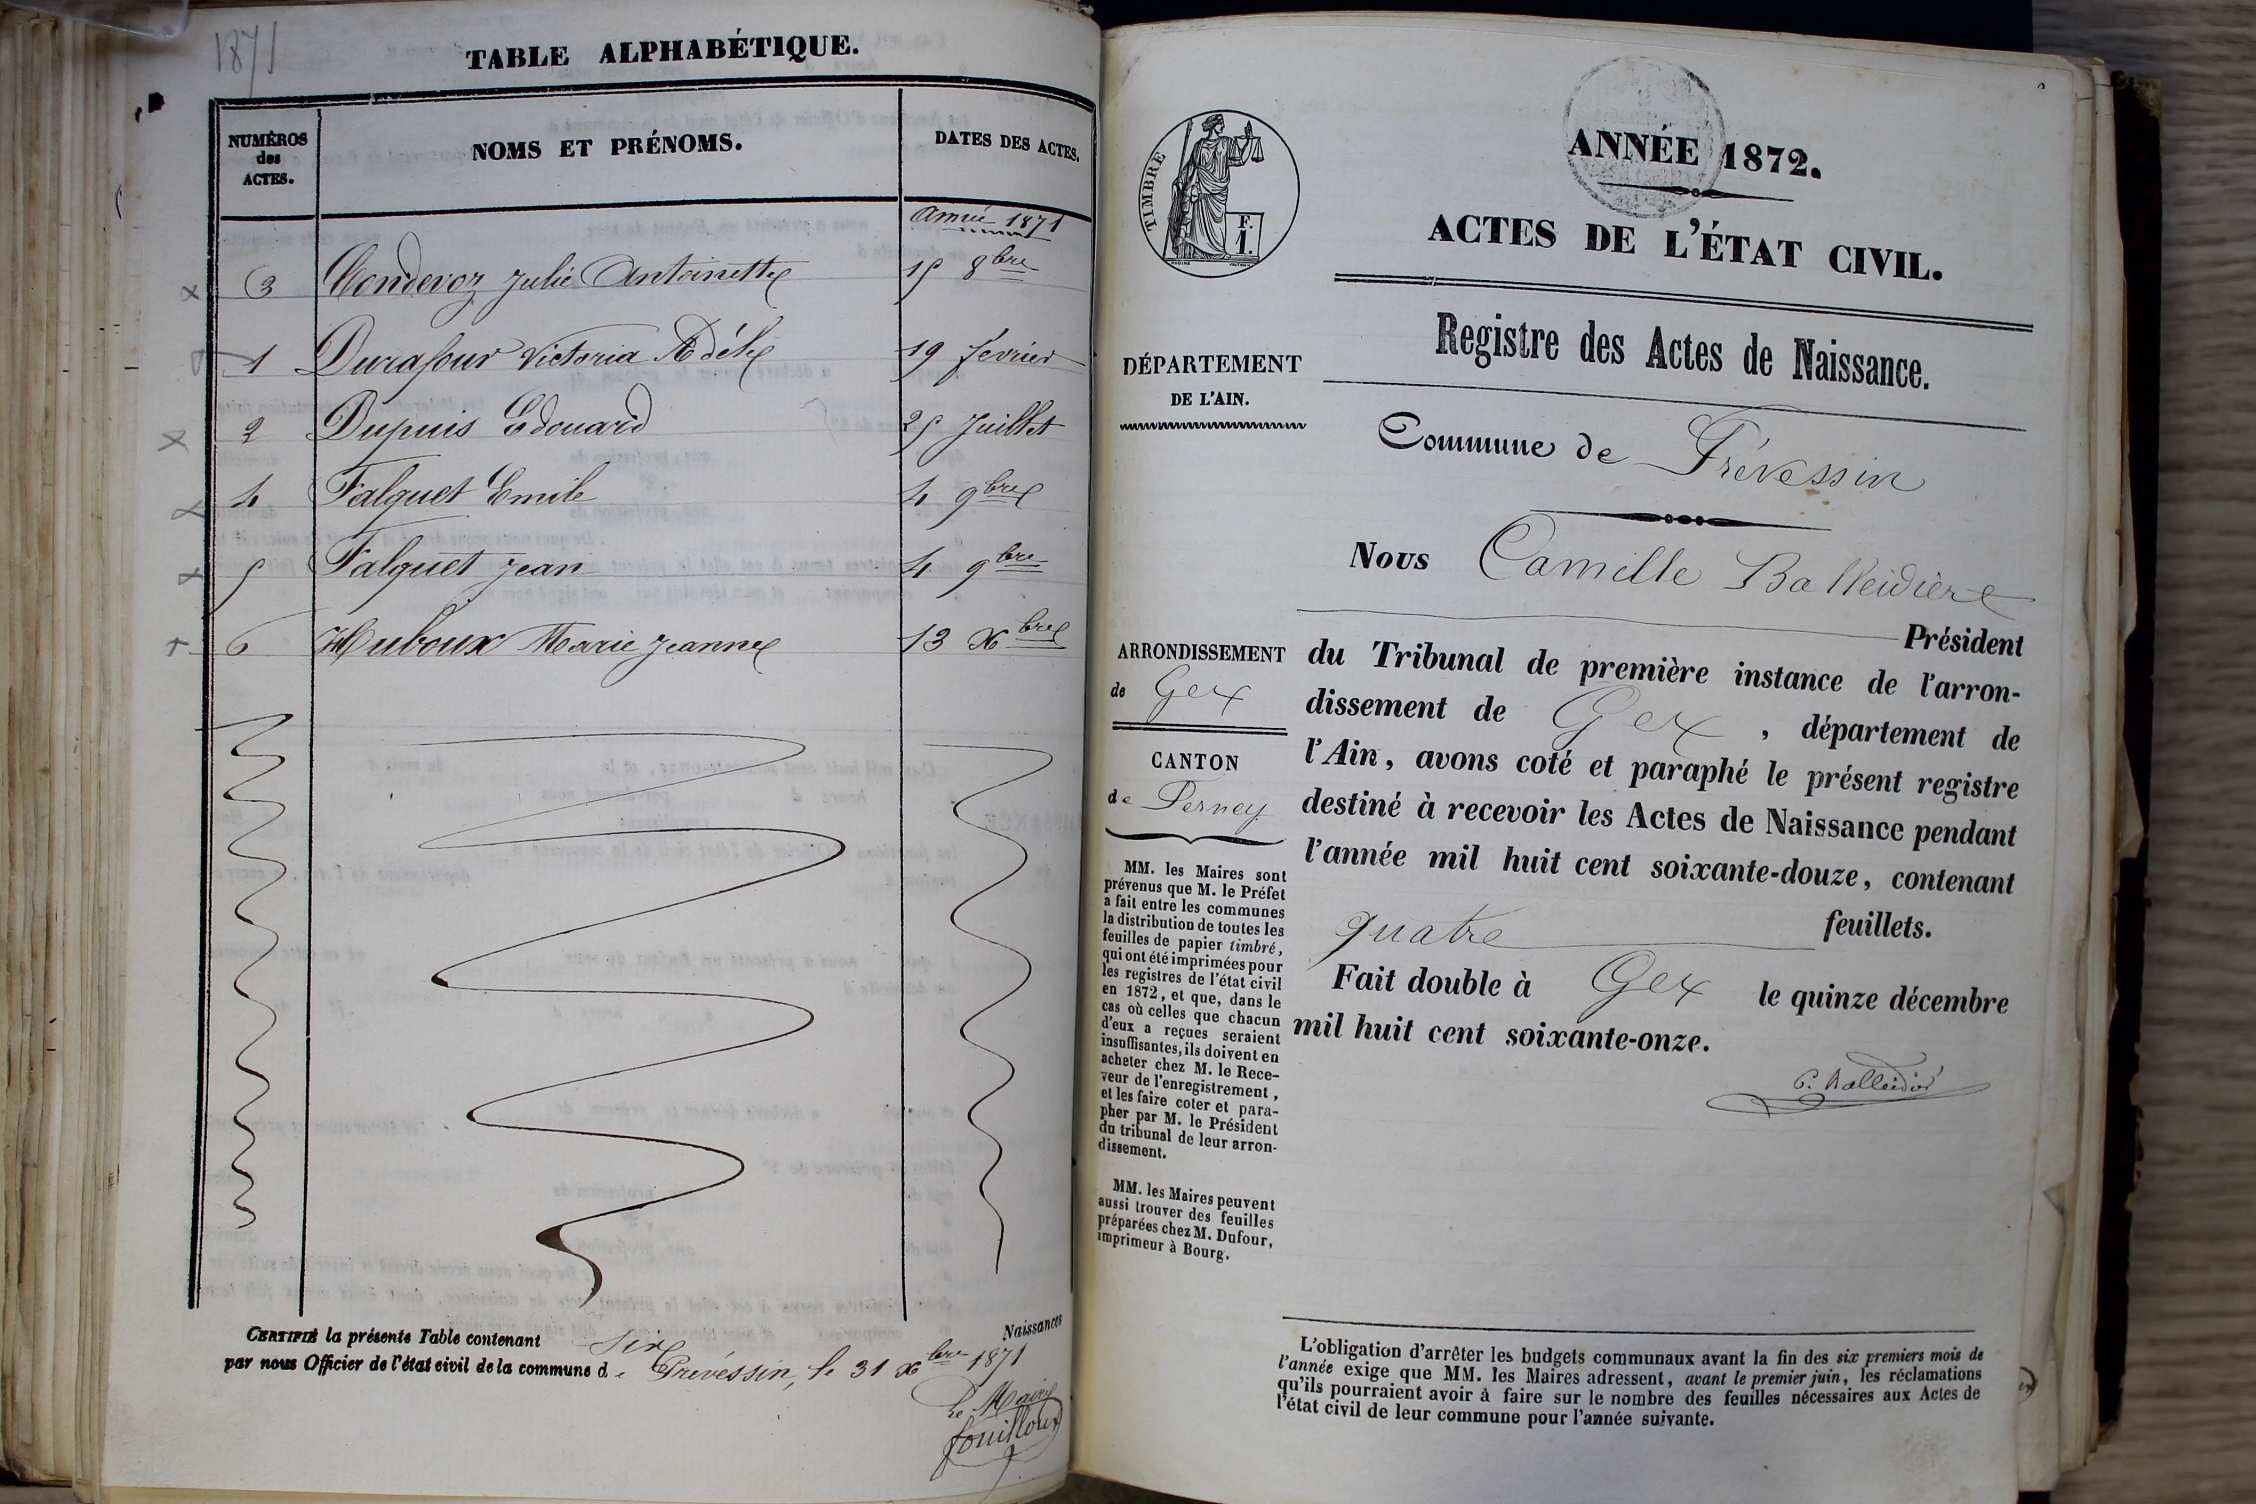 1871
TABLE ALPHABÉTIQUE.
NUMÉROS
des
ACTES.
NOMS ET PRÉNOMS.
DATES DES ACTES.
Année 1871
3 Condevoz Julie Antoinette 15 8bre
1 Durafour Victoria Adèle 19 février
2 Dupuis Edouard 25 Juillet
4 Falquet Emile 4 9bre
5 Falquet Jean 4 9bre
6 Huboux Marie Jeanne 13 Xbre
CERTIFIÉ la présente Table contenant six Naissances
par nous Officier de l'état civil de la commune de Prévessin, le 31 Xbre 1871
Le Maire
fouilloux
TIMBRE
F.
1.
ANNÉE 1872.
ACTES DE L'ÉTAT CIVIL.
Registre des Actes de Naissance.
DÉPARTEMENT
DE L'AIN.
Commune de Prévessin
Nous Camille Balleidier
Président
ARRONDISSEMENT
de Gex
CANTON
de Ferney
du Tribunal de première instance de l'arron-
dissement de Gex, département de
l'Ain, avons coté et paraphé le présent registre
destiné à recevoir les Actes de Naissance pendant
l'année mil huit cent soixante-douze, contenant
quatre feuillets.
Fait double à Gex le quinze décembre
mil huit cent soixante-onze.
C. Balleidier
MM. les Maires sont
prévenus que M. le Préfet
a fait entre les communes
la distribution de toutes les
feuilles de papier timbré,
qui ont été imprimées pour
les registres de l'état civil
en 1872, et que, dans le
cas où celles que chacun
d'eux a reçues seraient
insuffisantes, ils doivent en
acheter chez M. le Rece-
veur de l'enregistrement,
et les faire coter et para-
pher par M. le Président
du tribunal de leur arron-
dissement.
MM. les Maires peuvent
aussi trouver des feuilles
préparées chez M. Dufour,
imprimeur à Bourg.
L'obligation d'arrêter les budgets communaux avant la fin des six premiers mois de
l'année exige que MM. les Maires adressent, avant le premier juin, les réclamations
qu'ils pourraient avoir à faire sur le nombre des feuilles nécessaires aux Actes de
l'état civil de leur commune pour l'année suivante.